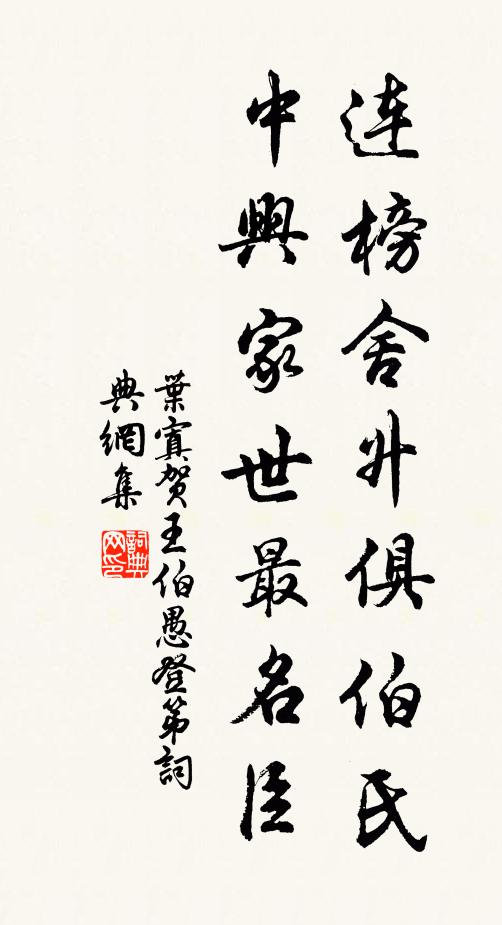 連榜舍升俱伯氏
中興家世最名臣
葉寘賀王伯愚登第詞
典網集
詞典网印